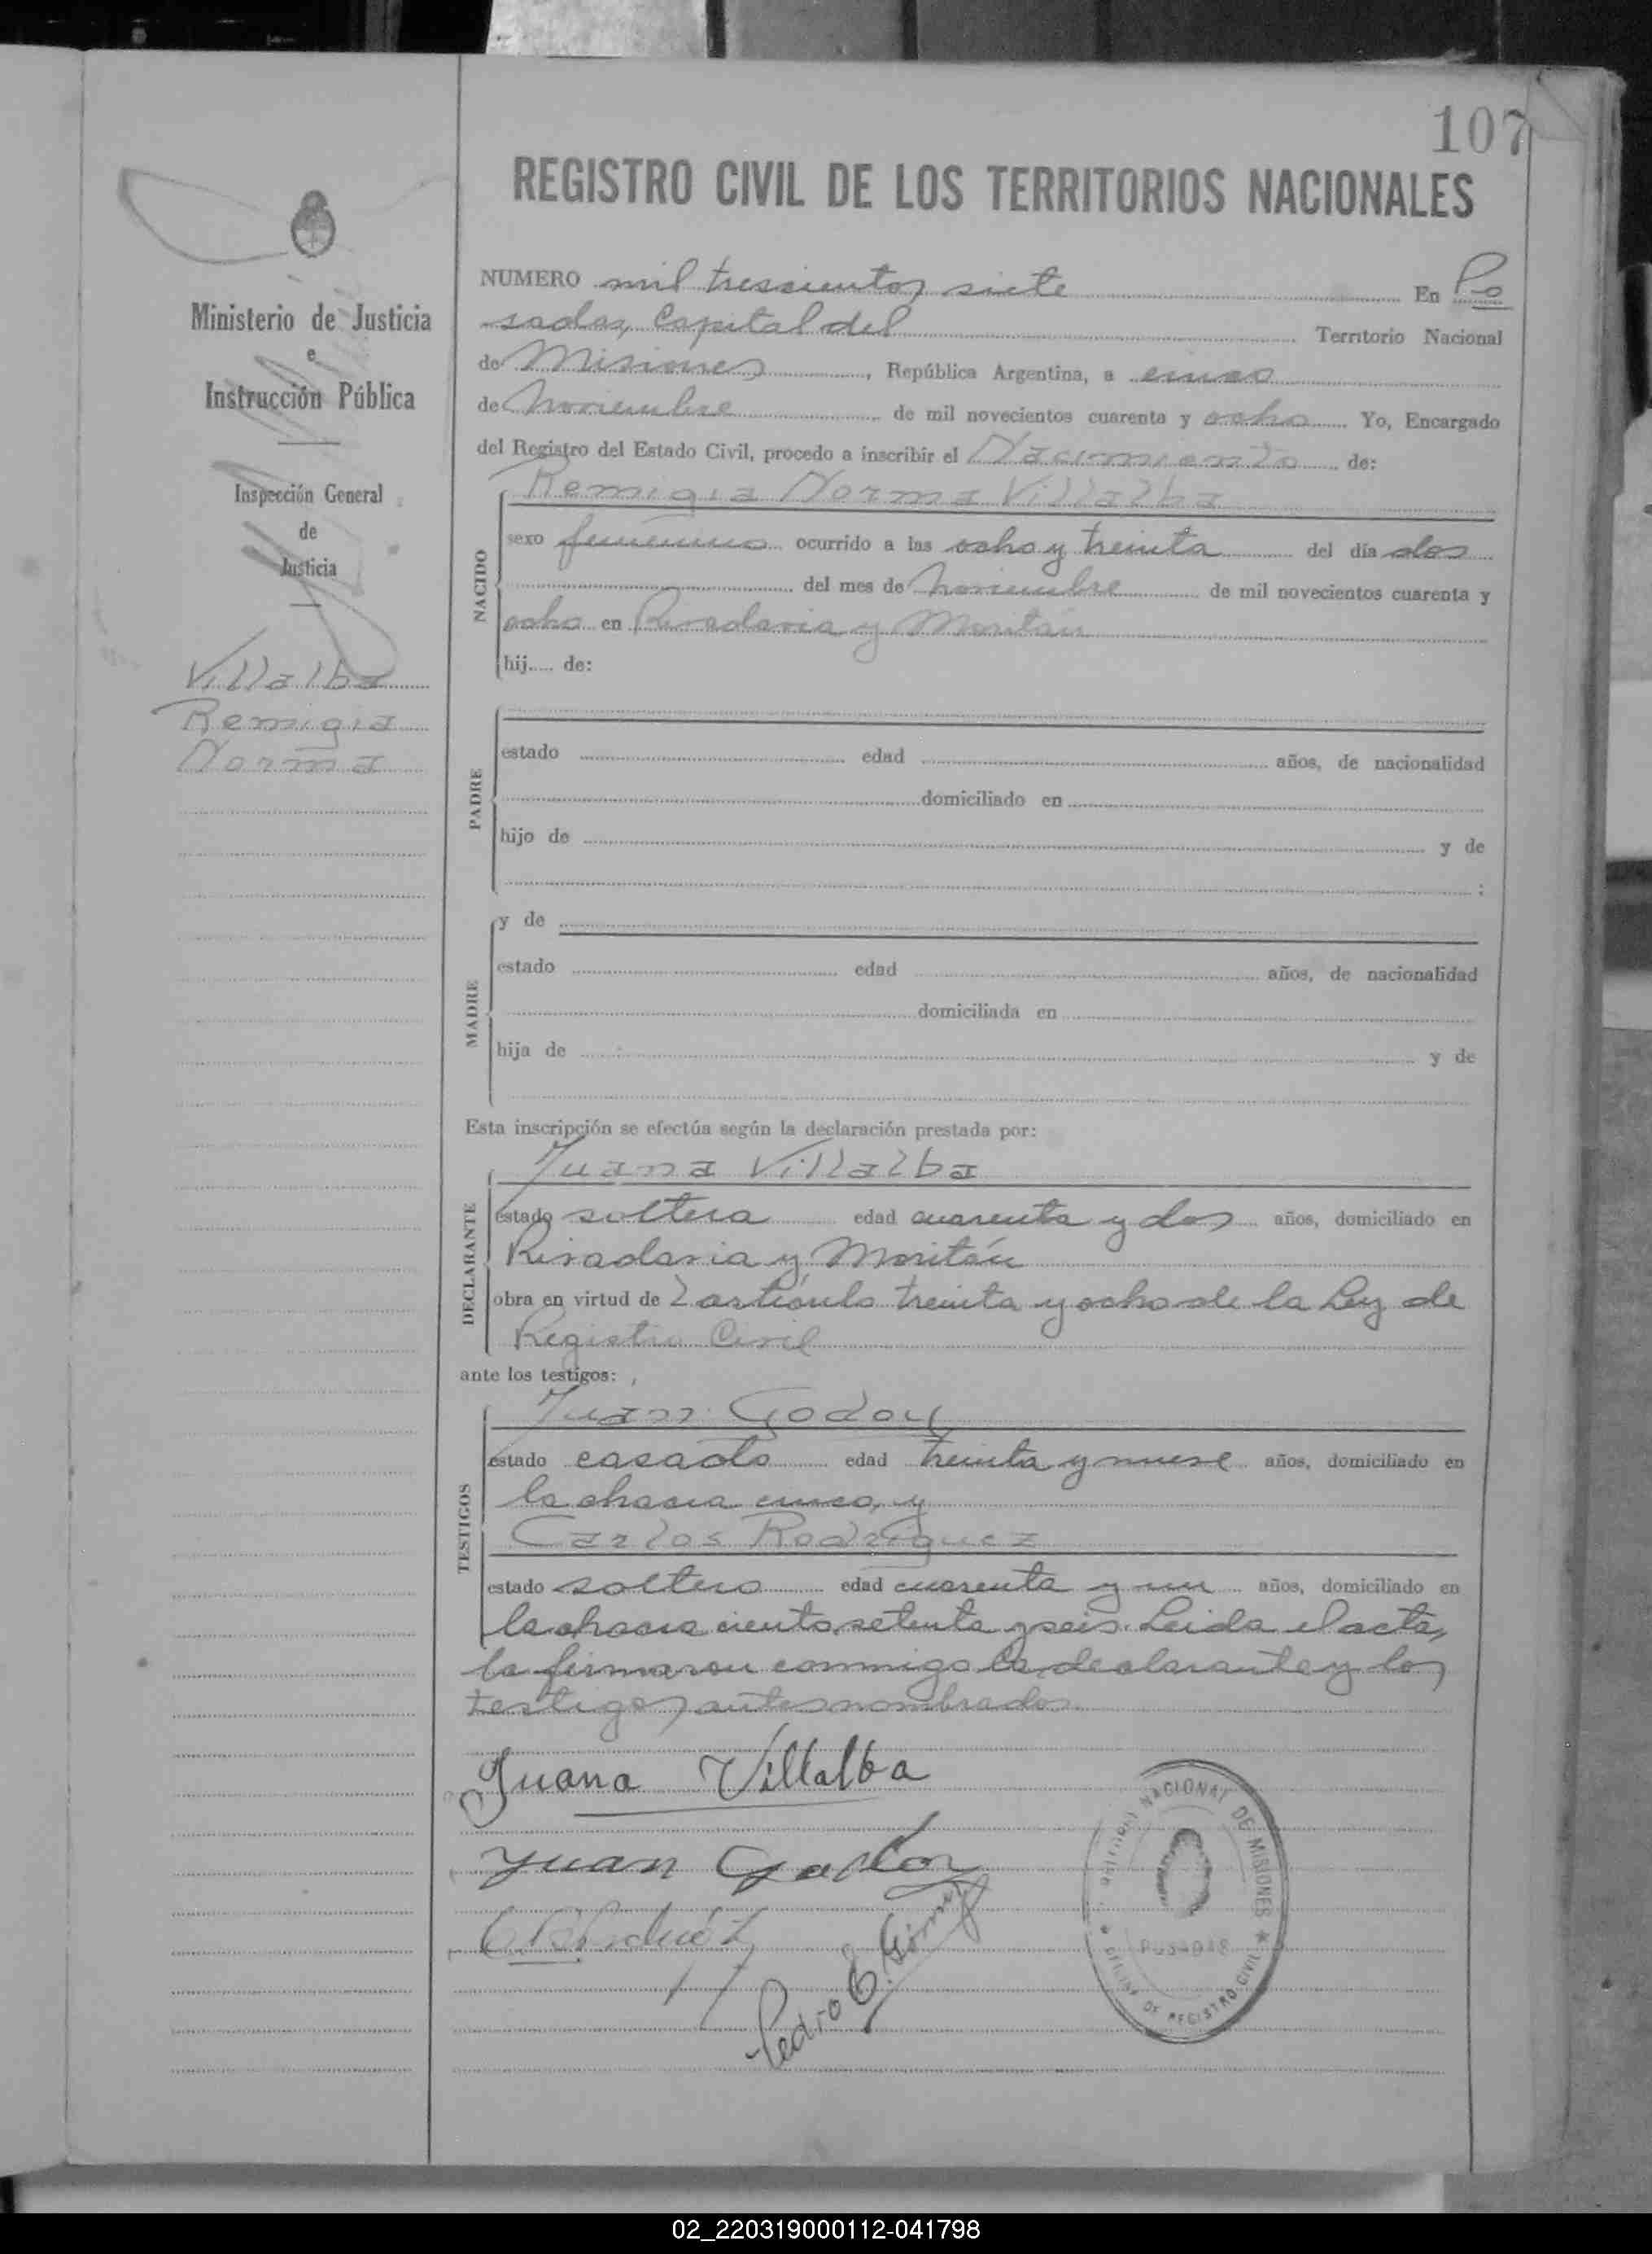 107
REGISTRO CIVIL DE LOS TERRITORIOS NACIONALES
Ministerio de Justicia
e
Instrucción Pública
Inspección General
de
Justicia
Villalba
Remigia
Norma
NUMERO mil trescientos siete En Po
sadas, Capital del Territorio Nacional
de Misiones, República Argentina, a cinco
de Noviembre de mil novecientos cuarenta y ocho Yo, Encargado
del Registro del Estado Civil, procedo a inscribir el Nacimiento de:
NACIDO
Remigia Norma Villalba
sexo femenino ocurrido a las ocho y treinta del día dos
del mes de Noviembre de mil novecientos cuarenta y
ocho en Rivadavia y Moritán
hij de:
PADRE
estado edad años, de nacionalidad
domiciliado en
hijo de y de
;
MADRE
y de
estado edad años, de nacionalidad
domiciliada en
hija de y de
Esta inscripción se efectúa según la declaración prestada por:
DECLARANTE
Juana Villalba
estado soltera edad cuarenta y dos años, domiciliado en
Rivadavia y Moritán
obra en virtud de l artículo treinta y ocho de la Ley de
Registro Civil
ante los testigos:
TESTIGOS
Juan Godoy
estado casado edad treinta y nueve años, domiciliado en
la chacra cinco, y
Carlos Rodriguez
estado soltero edad cuarenta y un años, domiciliado en
la chacra ciento setenta y seis. Leida el acta,
la firmaron conmigo la declarante y los
testigos antes nombrados.
Juana Villalba
Juan Godoy
Pedro G. Gómez
NACIONAL DE MISIONES
POSADAS
OFICINA DE REGISTRO CIVIL
02_220319000112-041798